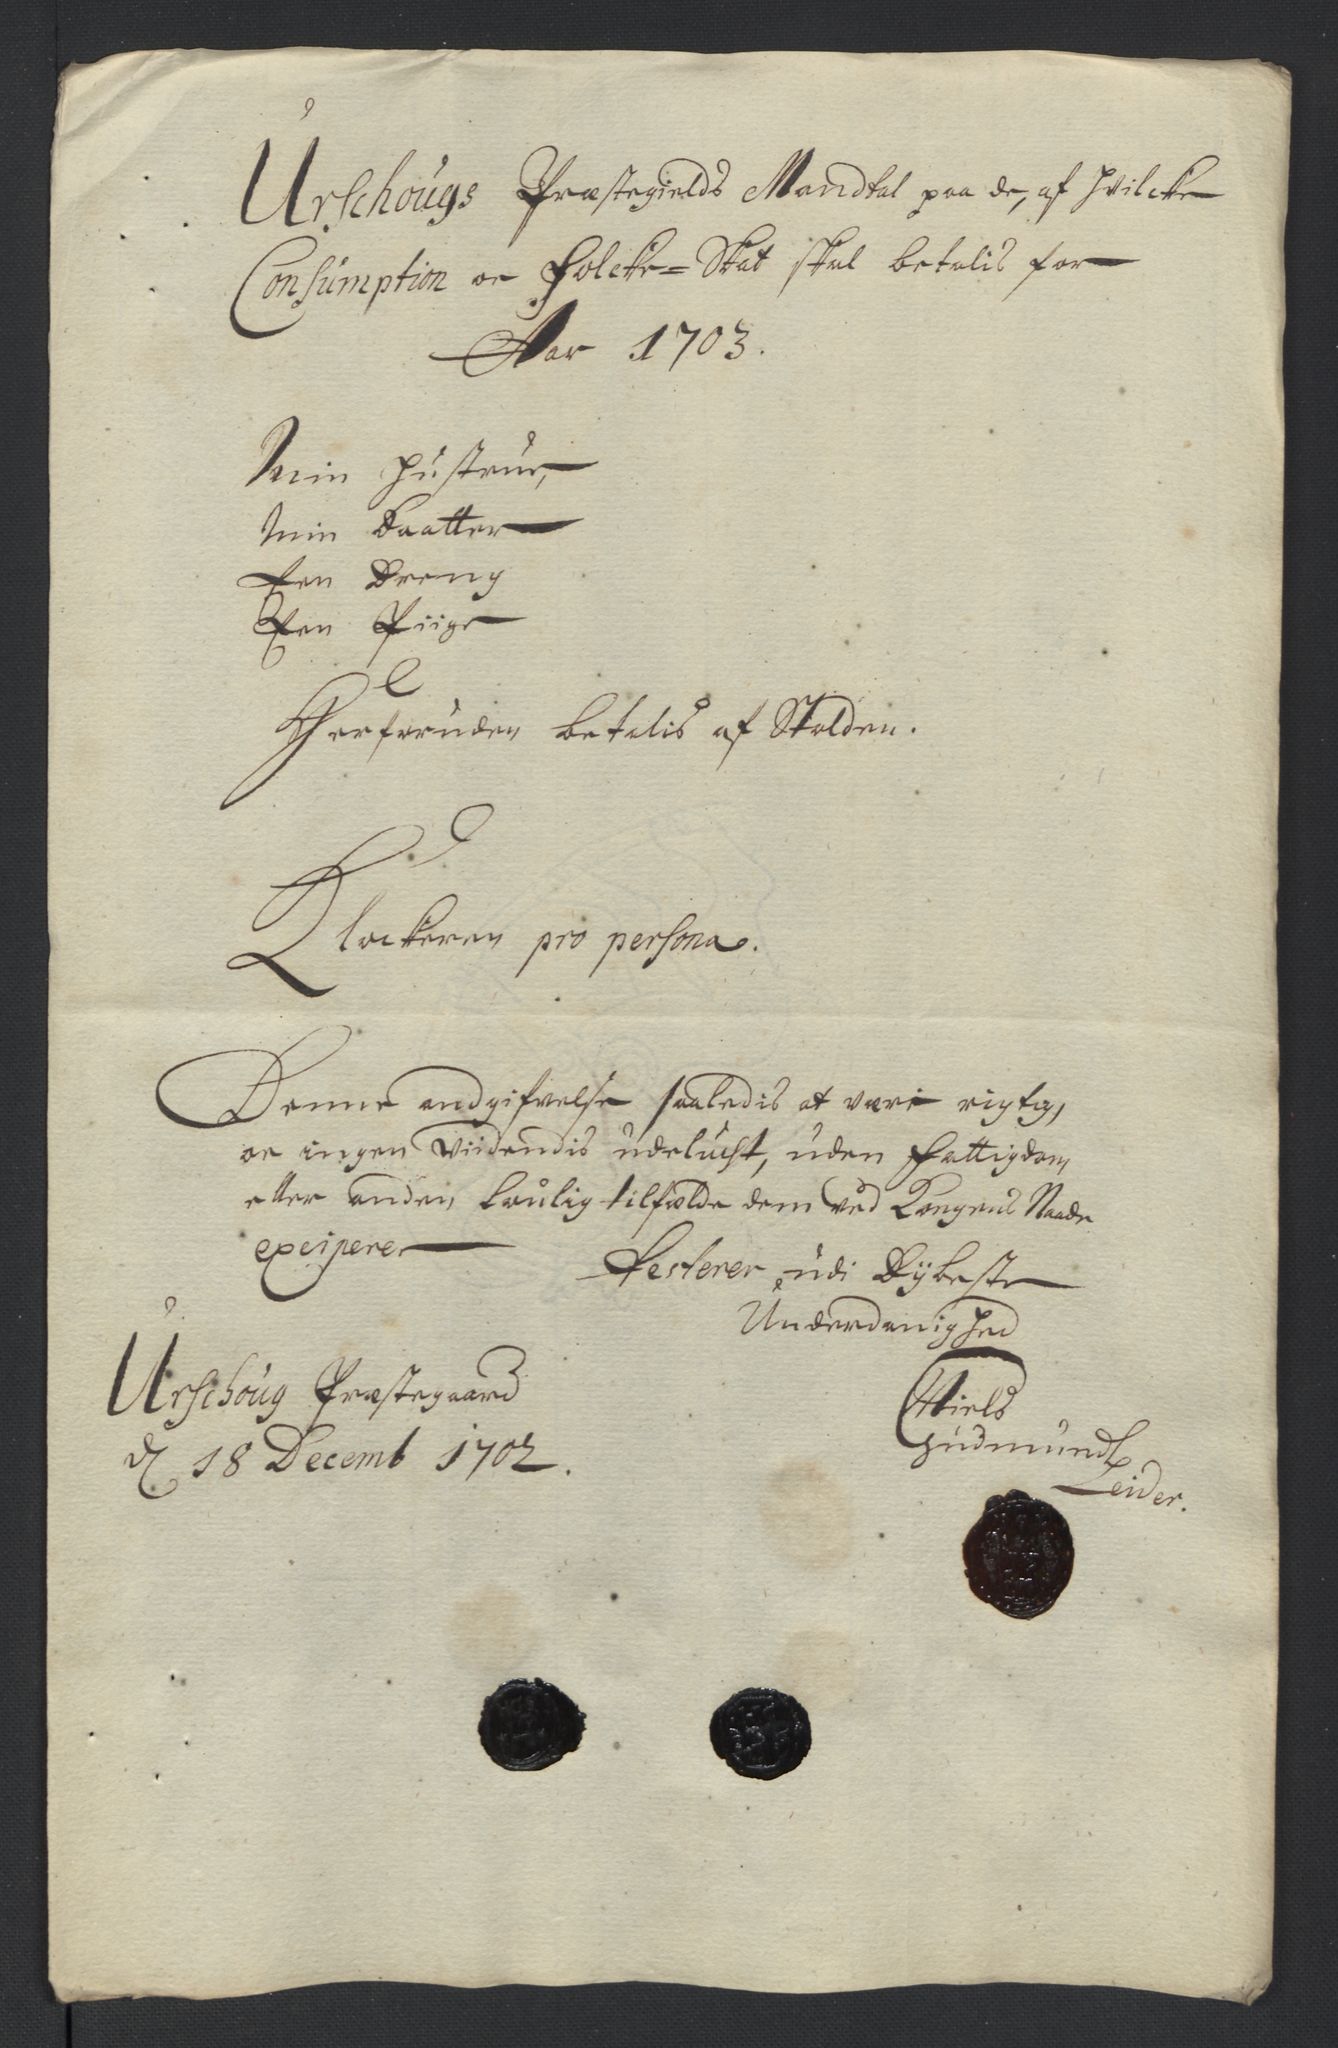 Urschougs Præstegields Mandtal paa de, af hvilcke
Consumption oc Folcke=Skat skal betalis for
Aar 1703.
Min Hustrue,
Min Daatter
Een Dreng
Een Piige
Herforuden betalis af Skolden.
Klockeren pro persona.
Denne andgifvelse saaledis at være rigtig,
oc ingen Viidendis udelucht, uden Fattigdom
eller anden loulig tilfælde dem ved Kongens Naade
exciperer
Testerer udi Dybeste
Underdanighed
Urschoug Præstegaard
d 18 Decemb 1702.
Niels
Gudmunds
Leider.